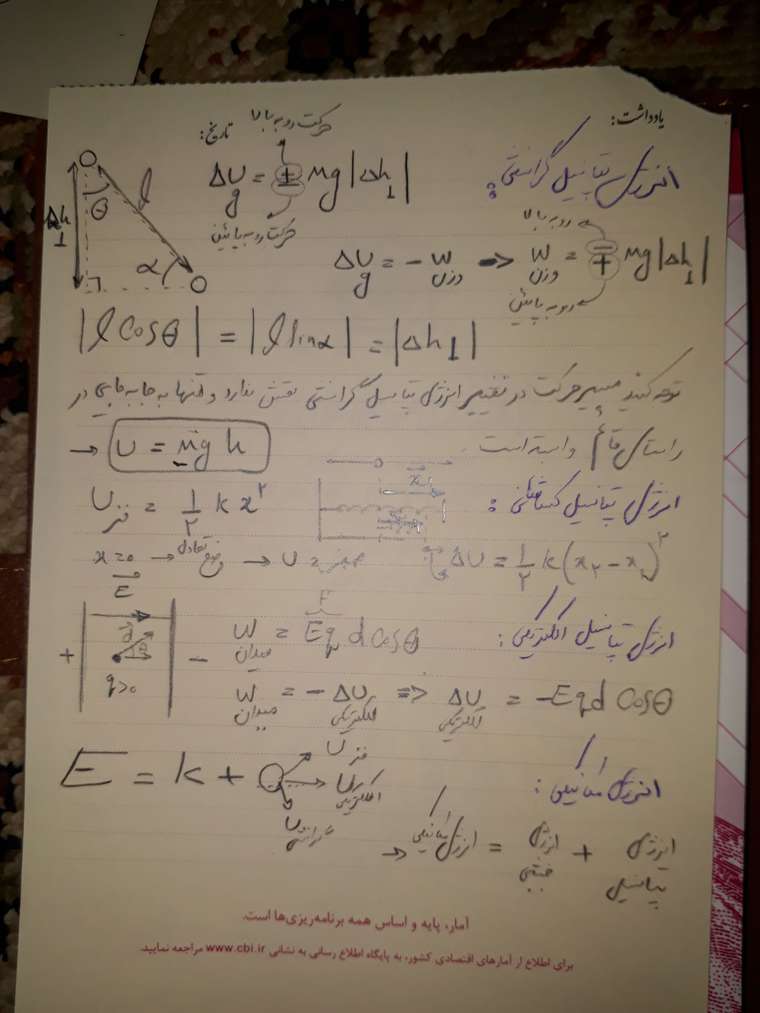 یادداشت:
تاریخ:
حرکت رو به بالا
انرژی پتانسیل گرانشی:
ΔU_g = ± mg|Δh_⊥|
حرکت رو به پایین
Δh_⊥ θ l α
رو به بالا
ΔU_g = -W وزن → W وزن = ∓ mg|Δh_⊥|
رو به پایین
|l Cosθ| = |l sinα| = |Δh_⊥|
توجه کنید مسیر حرکت در تغییر انرژی پتانسیل گرانشی نقش ندارد و تنها به جابه‌جایی در
راستای قائم وابسته است. → U = mgh
انرژی پتانسیل کشسانی:
U فنر = ½ k x²
x=0 → وضع تعادل → U = صفر
ΔU = ½ k(x₂ - x₁)²
انرژی پتانسیل الکتریکی:
W میدان = Eq d Cosθ
F
E
+ d θ q>0 -
W میدان = -ΔU الکتریکی => ΔU الکتریکی = -Eqd Cosθ
انرژی مکانیکی:
E = K + U فنر
U الکتریکی
U گرانشی
انرژی پتانسیل + انرژی جنبشی = انرژی مکانیکی ←
آمار، پایه و اساس همه برنامه‌ریزی‌ها است.
برای اطلاع از آمارهای اقتصادی کشور، به پایگاه اطلاع رسانی به نشانی www.cbi.ir مراجعه نمایید.